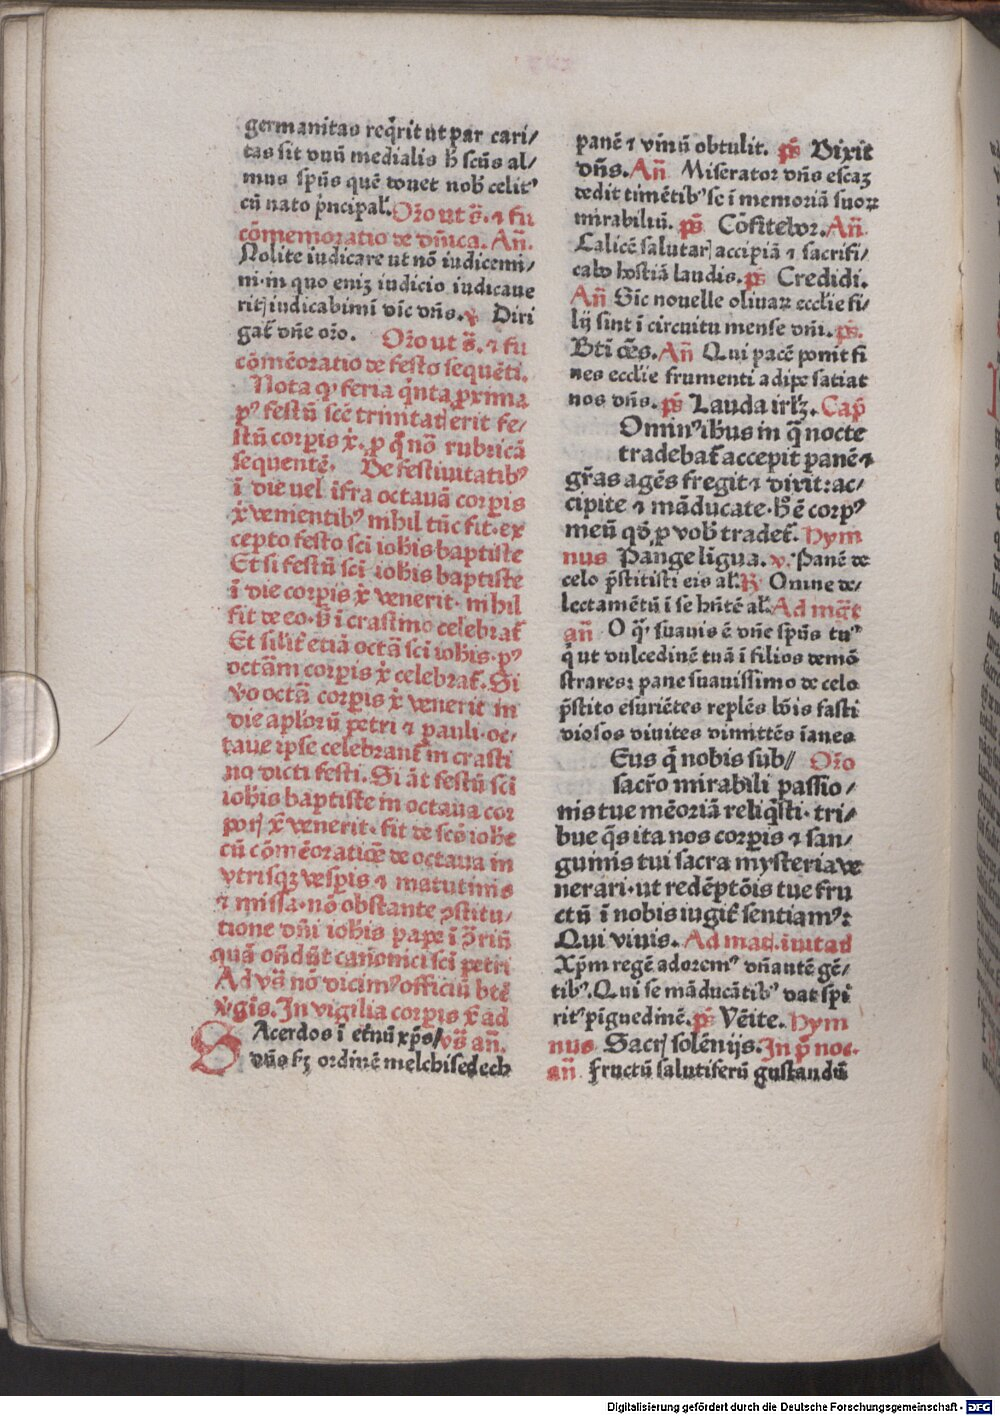 germanitas reqͥrit ut par cari/
tas sit vnū medialis h̄ scūs al/
mus spūs quē vouet nob̄ celitꝰ
cū nato pͥncipal̕. Oꝛ̄o ut s̄. ⁊ fit
cōmemoratio de dn̄ica. An̄.
Nolite iudicare ut nō iudicemi/
ni·in quo eniꝫ iudicio iudicaue
ritꝭ iudicabimī dīc dn̄s. v̕ Diri
gat̕ dn̄e or̄o. Or̄o ut s̄. ⁊ fit
cōmēoratio de festo sequēti.
Nota qꝫ feria qͥnta ꝓxima
pꝰ festū scē trinitatꝭ erit fe/
stū corꝑis xͥ. ꝑ qͣ nō rubricā
sequentē. De festiuitatibꝰ
ī die uel īfra octauā corꝑis
xͥ venientibꝰ nihil tūc fit·ex
cepto festo scī ioh̄is baptiste
Et si festū scī ioh̄is baptiste
ī die corꝑis xͥ venerit· nihil
fit de eo·s̄ ī crastino celebrat̕
Et silit̕ etiā octā scī ioh̄is·pꝰ
octām corꝑis xͥ celebrat̕. Si
vo octā corꝑis xͥ venerit in
die aplōrū petri ⁊ pauli·oc/
taue ipse celebrant̕ in crasti
no dicti festi. Si āt festū scī
ioh̄is baptiste in octaua cor
porꝭ xͥ venerit· fit de scō ioh̄e
cū cōmēoratiōe de octaua in
vtrisqꝫ vesꝑis ⁊ matutinis
⁊ missa·nō obstante ꝯstitu/
tione dn̄i ioh̄is pape ī ꝯ̄riū
quā on̄dūt canonici scī petri
Ad vs̄ nō dicimꝰ officiū btē
vͥgīs. In vigilia corꝑis xͥ ad
Sacerdos ī et̕nū xp̄s/ vs̄ an̄.
dn̄s ẜꝫ ordinē melchisedech
panē ⁊ vinū obtulit. ps̄ Dixit
dn̄s. An̄ Miserator dn̄s escaꝫ
dedit timētibꝰ se ī memoriā suoꝝ
mirabiliū. ps̄ Cōfitebor. An̄
Calicē salutarꝭ accipiā ⁊ sacrifi/
cabo hostiā laudis. ps̄ Credidi.
An̄ Sic nouelle oliuaꝝ ecclīe fi/
lij sint ī circuitu mense dn̄i. ps̄.
Btī oēs. An̄ Qui pacē ponit fi
nes ecclīe frumenti adipe satiat
nos dn̄s. ps̄ Lauda irlꝫ. Cap̄
Omin̕ ih̄us in qͣ nocte
tradebat̕ accepit panē ⁊
gr̄as agēs fregit ⁊ dixit: ac/
cipite ⁊ māducate·h̄ ē corpꝰ
meū qd̄ ꝓ vob̄ tradet̕. Hym
nus Pange ligua. v̕. Panē de
celo p̄stitisti eis al̕. R̷ Omne de/
lectamētū ī se hn̄tē al̕. Ad mgͣt
an̄ O qͣꝫ suauis ē dn̄e spūs tuꝰ
qͥ ut dulcedinē tuā ī filios demō
strares: pane suauissimo de celo
p̄stito esuriētes reples bōis fasti
diosos diuites dimittēs īanes
Eus qͥ nobis sub// Or̄o
sacrō mirabili passio/
nis tue mēoriā reliqͥsti· tri/
bue qs̄ ita nos corꝑis ⁊ san/
guinis tui sacra mysteria ve
nerari·ut redēptōis tue fru
ctū ī nobis iugit̕ sentiamꝰ:
Qui viuis. Ad mad. īuitad
Xp̄m regē adoremꝰ dn̄antē gē/
tibꝰ. Qui se māducātibꝰ dat spī
ritꝰ pīguedinē. ps̄ Vēite. Hym
nus Sacrꝭ solēnijs. In p̄ noc.
an̄ Fructū salutiferū gustandū
Digitalisierung gefördert durch die Deutsche Forschungsgemeinschaft - DFG